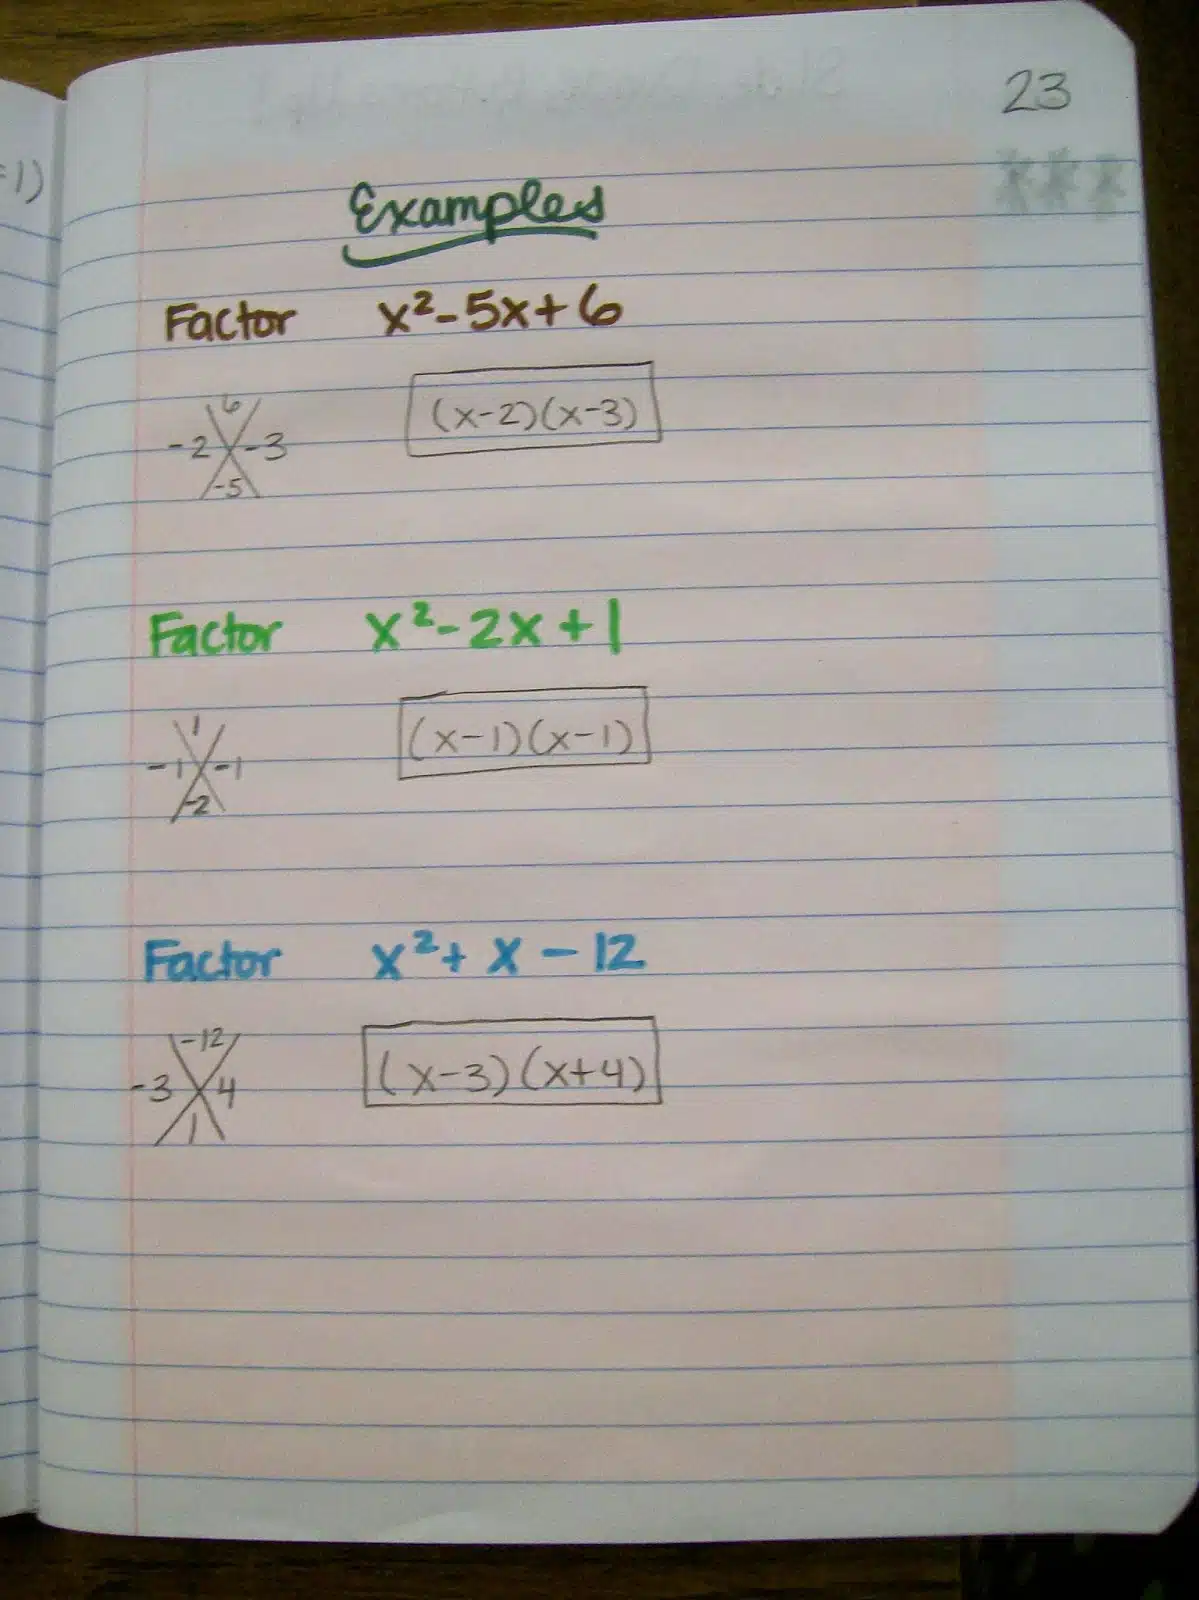 23
=1)
Examples
Factor x² - 5x + 6
6
-2 -3
-5
(x-2)(x-3)
Factor x² - 2x + 1
1
-1 -1
-2
(x-1)(x-1)
Factor x² + x - 12
-12
-3 4
1
(x-3)(x+4)